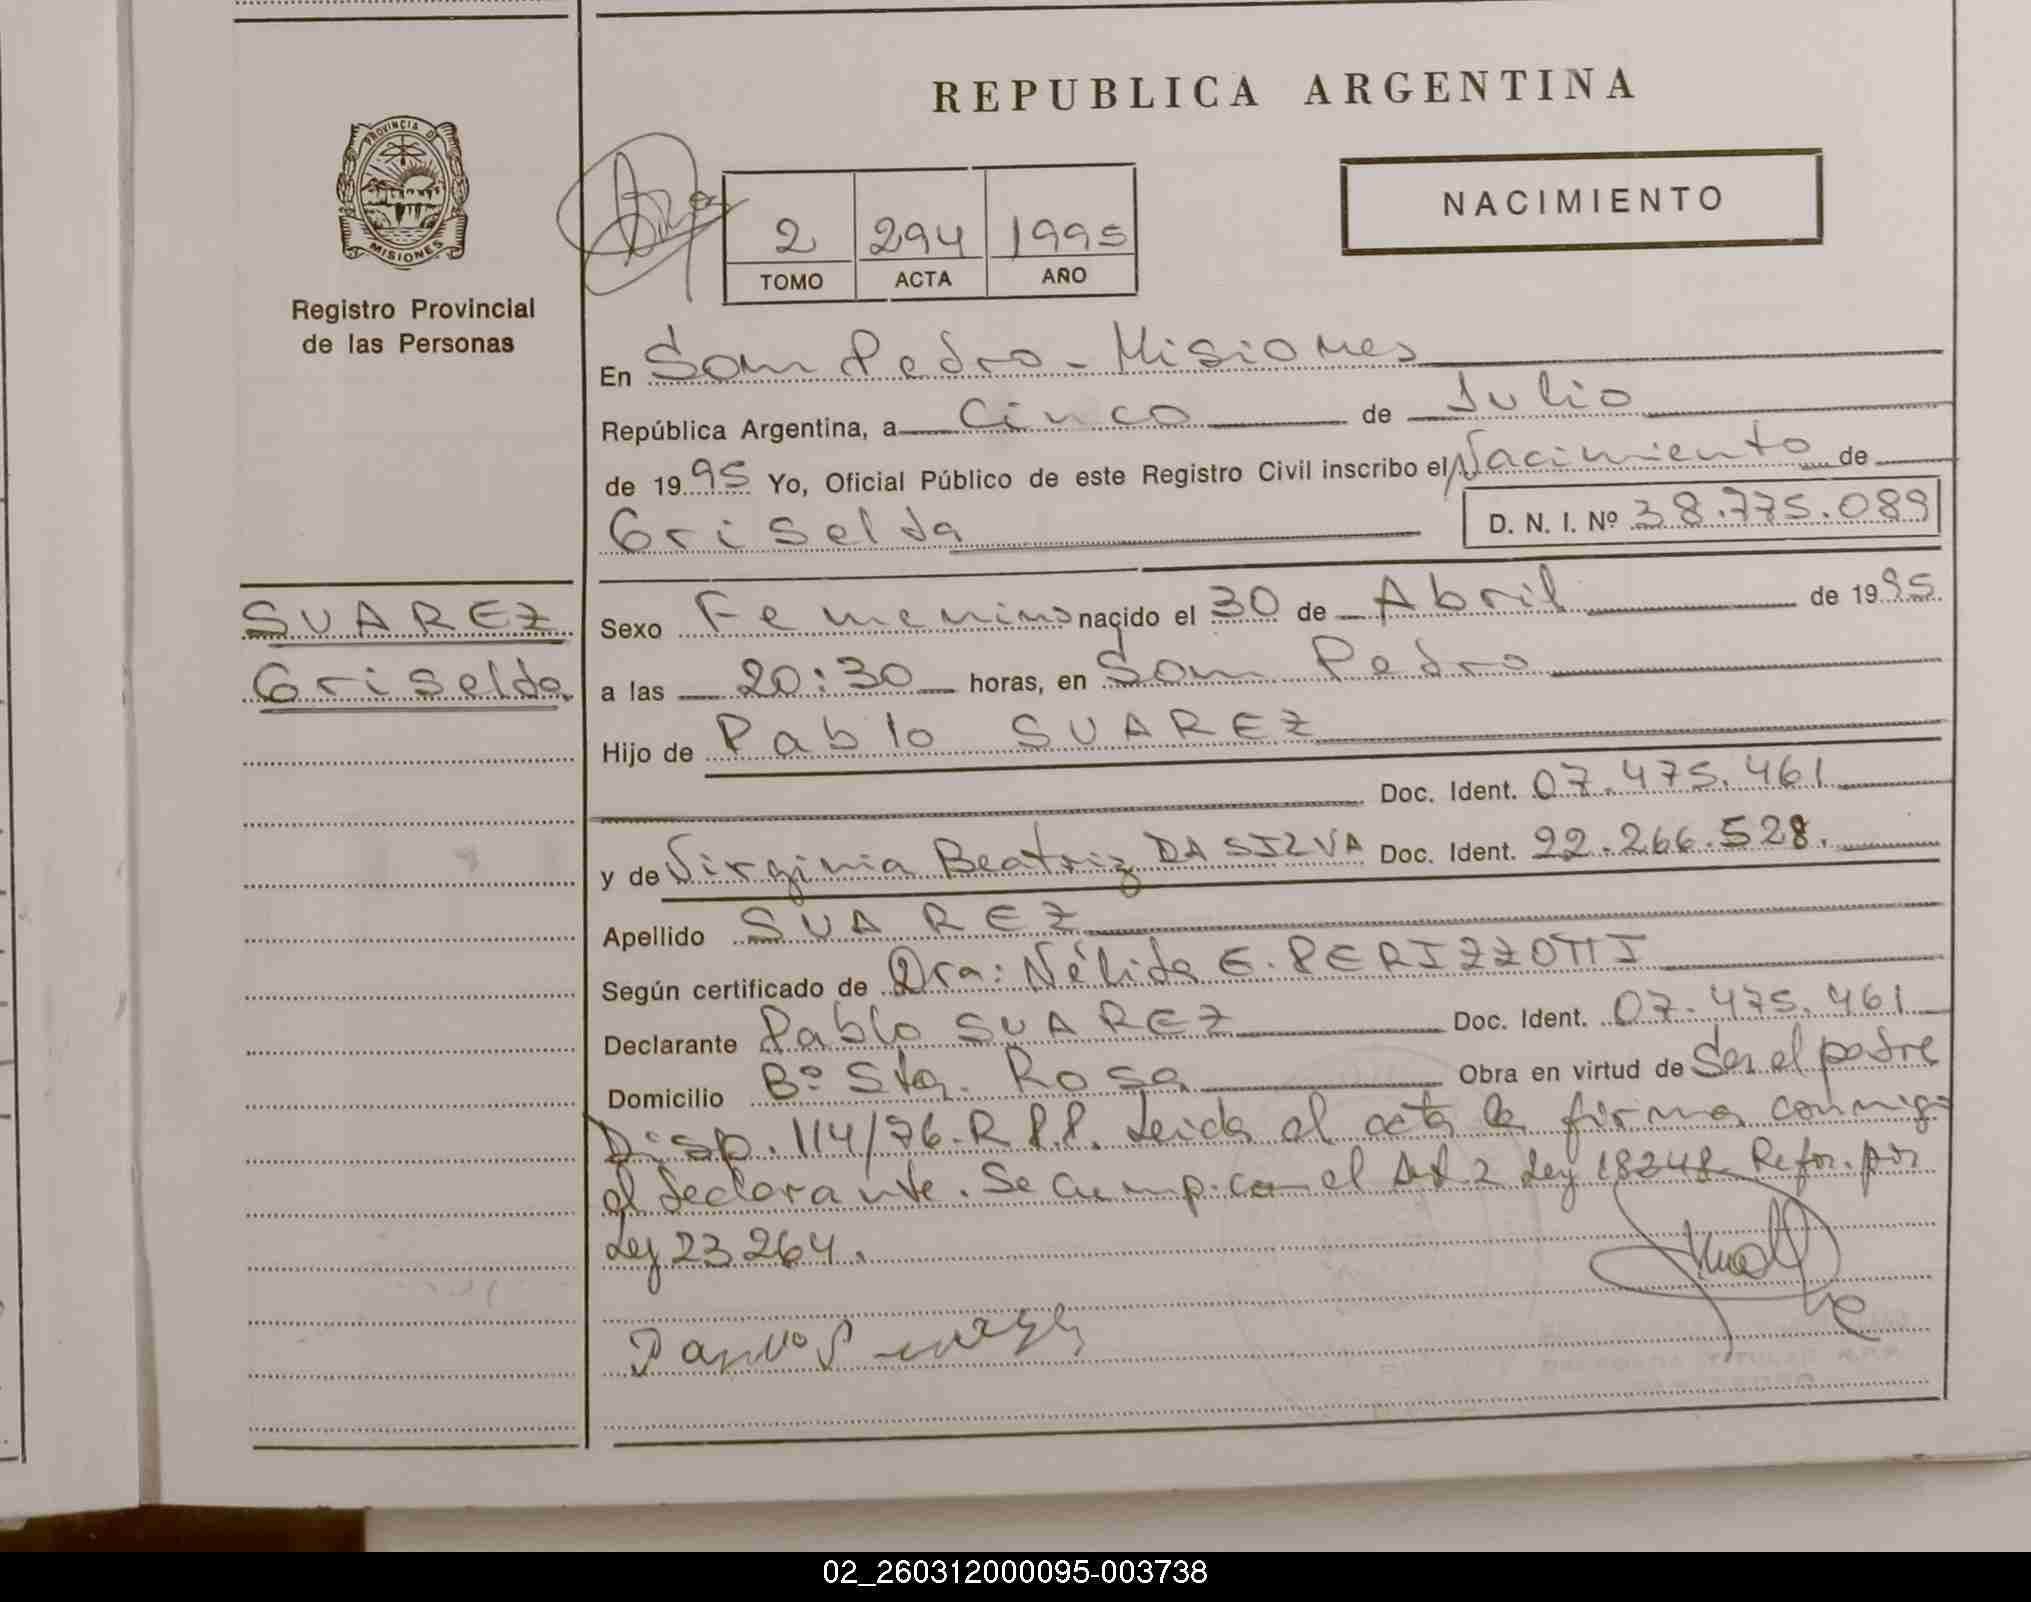 REPUBLICA ARGENTINA
PROVINCIA DE
MISIONES
Registro Provincial
de las Personas
NACIMIENTO
2 294 1995
TOMO ACTA AÑO
En San Pedro - Misiones
República Argentina, a Cinco de Julio
de 1995 Yo, Oficial Público de este Registro Civil inscribo el Nacimiento de
Griselda D. N. I. Nº 38.775.089
SUAREZ
Griselda
Sexo Femenino nacido el 30 de Abril de 1995
a las 20:30 horas, en San Pedro
Hijo de Pablo SUAREZ
Doc. Ident. 07.475.461
y de Virginia Beatriz DA SILVA Doc. Ident. 22.266.528.
Apellido SUAREZ
Según certificado de Dra: Nélida E. PERIZZOTTI
Declarante Pablo SUAREZ Doc. Ident. 07.475.461
Domicilio Bº Sta. Rosa Obra en virtud de Ser el padre
Disp. 114/76-R.P.P. Leida el acta la firma conmigo
el declarante. Se cump. con el Art 2 Ley 18248. Refor. por
Ley 23264.
DELEGADA TITULAR R.P.P.
02_260312000095-003738